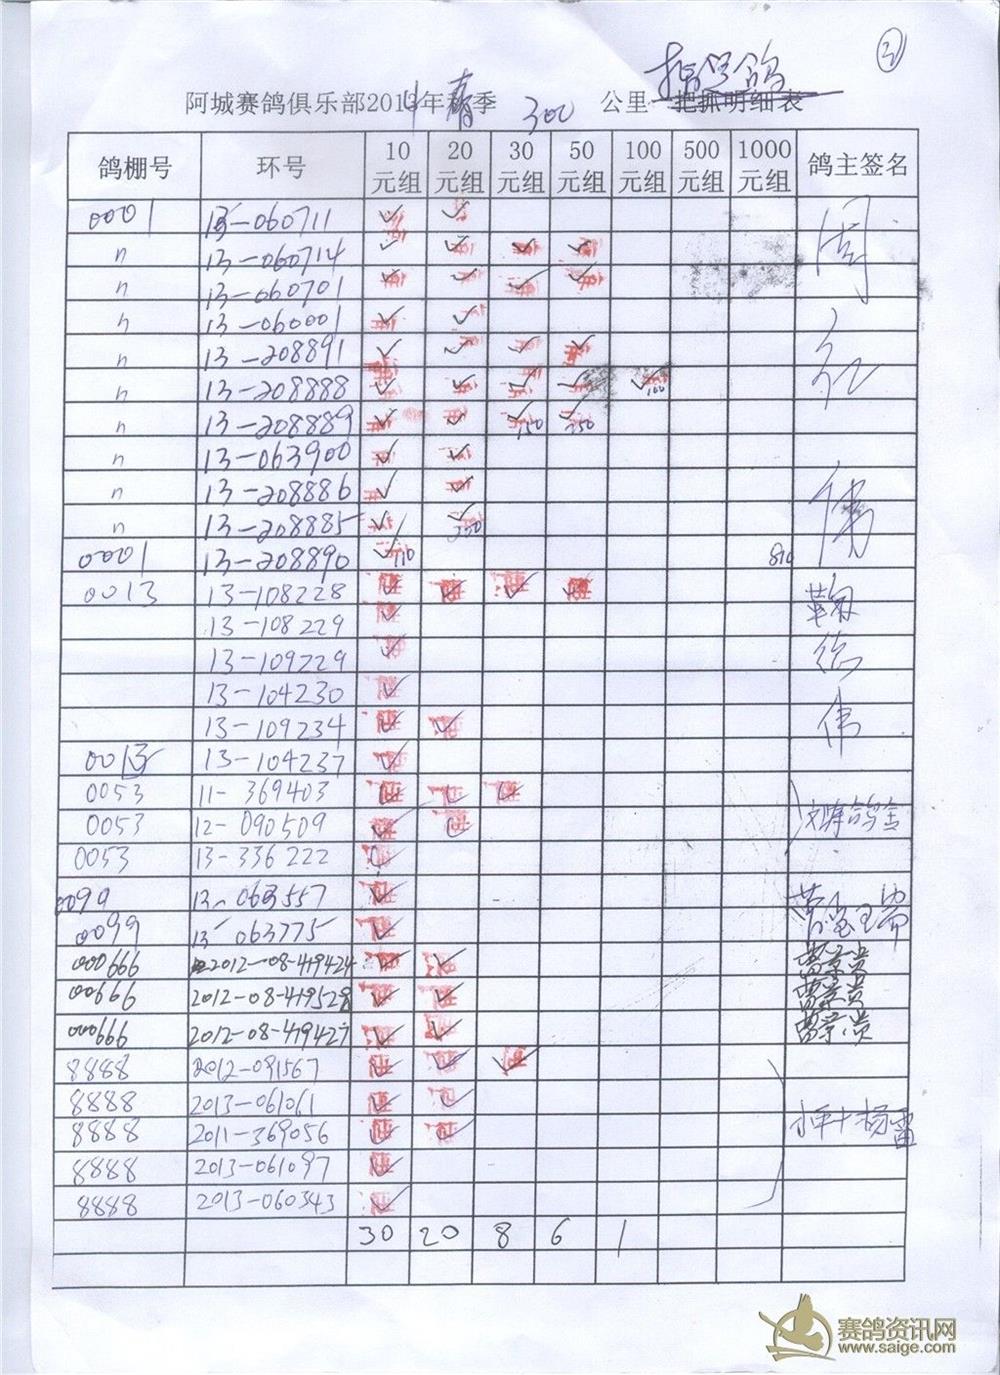 2
指定鸽
阿城赛鸽俱乐部2014年春季 300 公里 一把抓明细表
鸽棚号 环号 10元组 20元组 30元组 50元组 100元组 500元组 1000元组 鸽主签名
0001 13-060711 ✓ ✓
〃 13-060714 ✓ ✓ ✓ ✓
〃 13-060701 ✓ ✓ ✓ ✓
〃 13-060001 ✓ ✓
〃 13-208891 ✓ ✓ ✓ ✓
〃 13-208888 ✓ ✓ ✓ ✓ ✓100
〃 13-208889 ✓ ✓ ✓150 ✓250
〃 13-063900 ✓ ✓
〃 13-208886 ✓ ✓
〃 13-208885 ✓ ✓
0001 13-208890 ✓110 810
周
伟
0013 13-108228 ✓ ✓ ✓ ✓
13-108229 ✓
13-109229 ✓
13-104230 ✓
13-109234 ✓ ✓
0013 13-104237 ✓
伟
0053 11-369403 ✓ ✓ ✓
0053 12-090509 ✓ ✓
0053 13-336222 ✓
0099 13-063557 ✓
0099 13-063775 ✓
000666 2012-08-419424 ✓ ✓ 曹景贵
00666 2012-08-419528 ✓ ✓ 曹景贵
000666 2012-08-419427 ✓ ✓ 曹景贵
8888 2012-091567 ✓ ✓ ✓
8888 2013-061061 ✓ ✓
8888 2011-369056 ✓ ✓ 小平+杨雷
8888 2013-061097 ✓
8888 2013-060343 ✓
30 20 8 6 1
赛鸽资讯网
www.saige.com